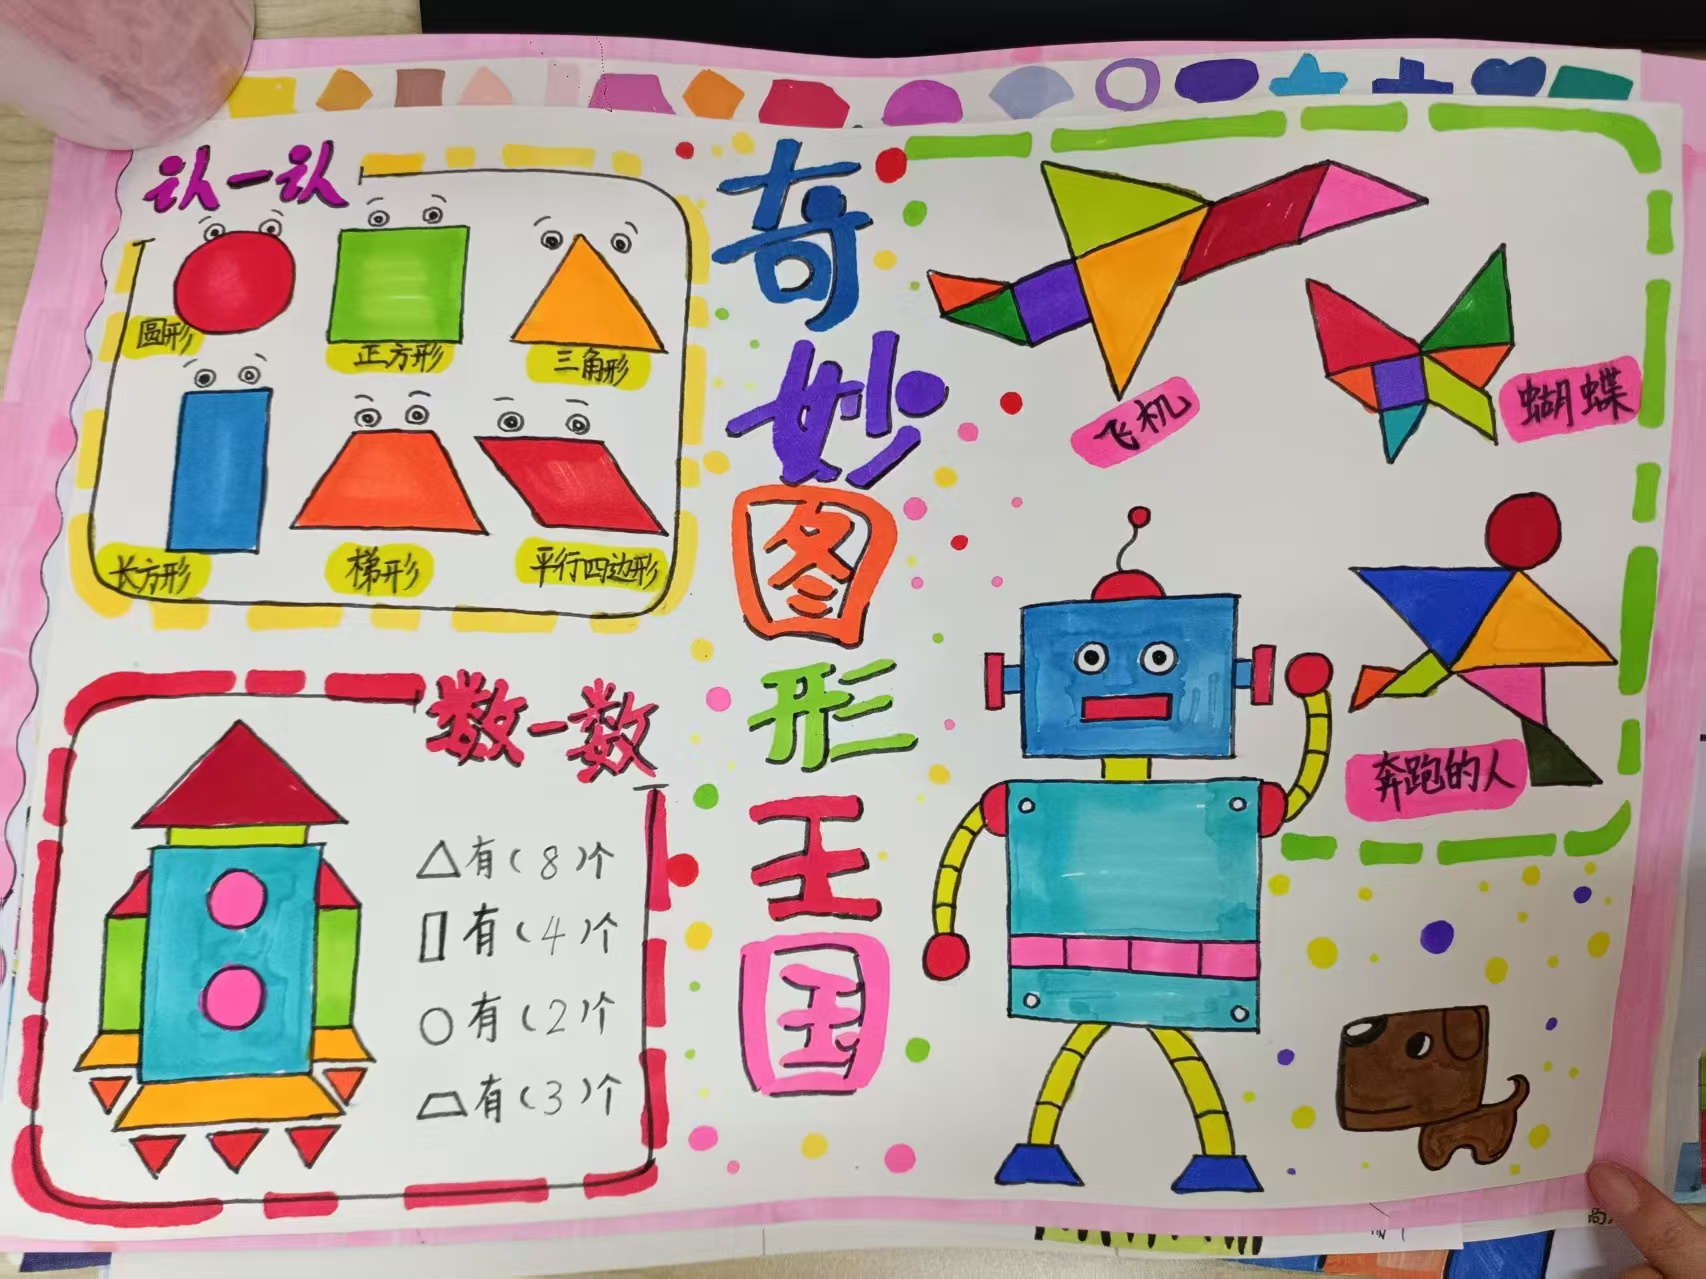 奇妙图形王国
认一认
圆形
正方形
三角形
长方形
梯形
平行四边形
数一数
△有(8)个
▯有(4)个
○有(2)个
⏢有(3)个
飞机
蝴蝶
奔跑的人